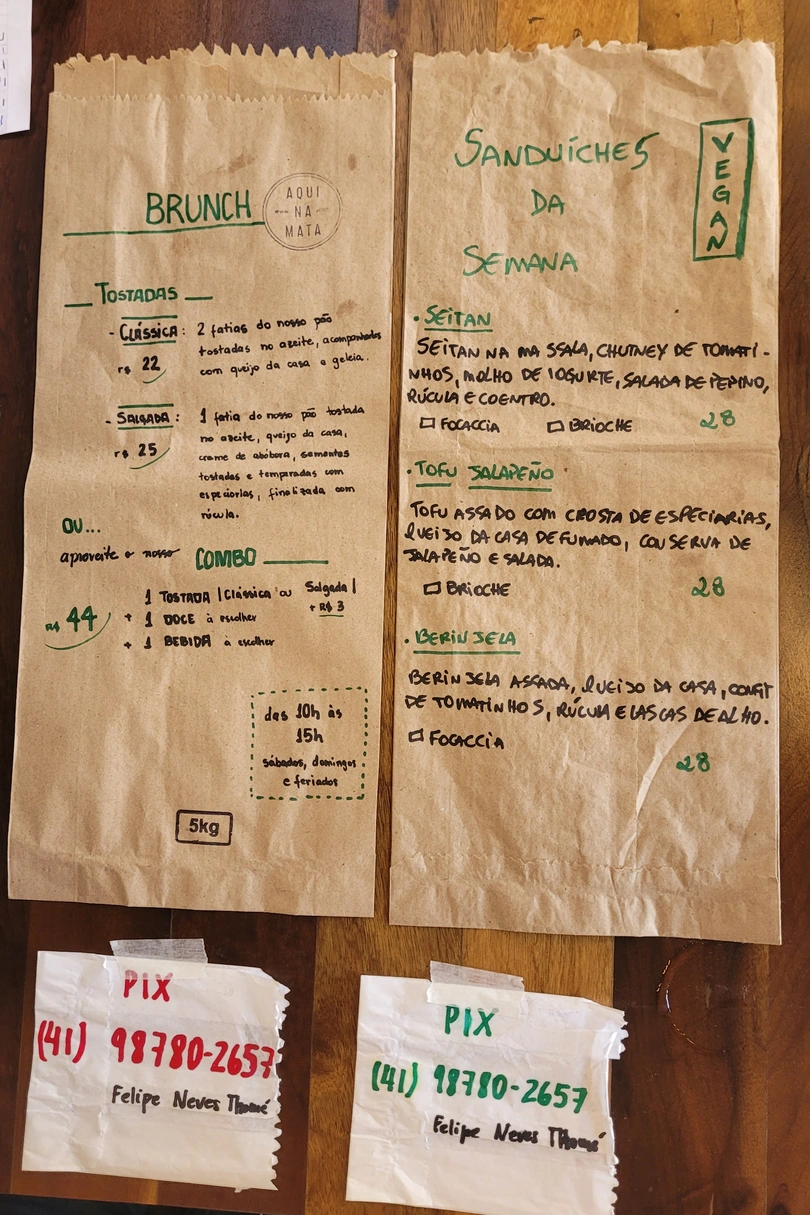 BRUNCH
AQUI
NA
MATA
TOSTADAS
- CLÁSSICA: 2 fatias do nosso pão
tostadas no azeite, acompanhadas
R$ 22 com queijo da casa e geleia.
- SALGADA: 1 fatia do nosso pão tostada
R$ 25 no azeite, queijo da casa,
creme de abóbora, sementes
tostadas e temperadas com
especiarias, finalizada com
rúcula.
OU...
aproveite o nosso COMBO
R$ 44
1 TOSTADA | Clássica ou Salgada |
+ R$ 3
+ 1 DOCE à escolher
+ 1 BEBIDA à escolher
das 10h às
15h
sábados, domingos
e feriados
5kg
SANDUÍCHES
DA
SEMANA
VEGAN
• SEITAN
SEITAN NA MASSALA, CHUTNEY DE TOMATI-
NHOS, MOLHO DE IOGURTE, SALADA DE PEPINO,
RÚCULA E COENTRO.
FOCACCIA BRIOCHE 28
• TOFU JALAPEÑO
TOFU ASSADO COM CROSTA DE ESPECIARIAS,
QUEIJO DA CASA DEFUMADO, CONSERVA DE
JALAPEÑO E SALADA.
BRIOCHE 28
• BERINJELA
BERINJELA ASSADA, QUEIJO DA CASA, CONFIT
DE TOMATINHOS, RÚCULA E LASCAS DE ALHO.
FOCACCIA
28
PIX
(41) 98780-2657
Felipe Neves Thomé
PIX
(41) 98780-2657
Felipe Neves Thomé